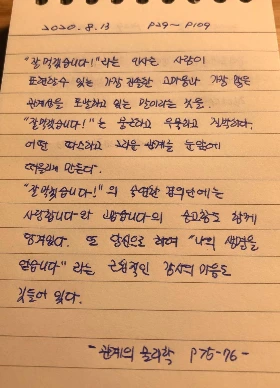 2020. 8. 13 P29~P109
"잘 먹겠습니다!"라는 인사는 사람이
표현할 수 있는 가장 진솔한 고마움과 가장 많은
관계성을 포함하고 있는 말이라는 것을.
"잘 먹겠습니다!"는 뭉근하고 우묵하고 질박하다.
어떤 따스하고 그리운 관계를 눈앞에
떠올리게 만든다.
"잘 먹겠습니다!"의 음표한 끝에는
사랑합니다-와 고맙습니다-의 숭고함도 함께
담겨있다. 또 당신으로 하여 "나의 생명을
얻습니다" 라는 근원적인 감사의 마음도
깃들어 있다.
- 관계의 물리학 P75-76 -